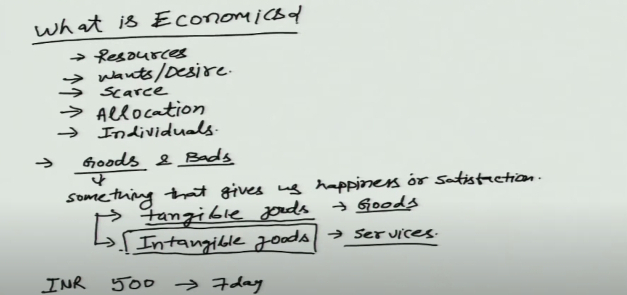 What is Economics?
→ Resources
→ Wants/Desire.
→ Scarce
→ Allocation
→ Individuals.
→ Goods & Bads
something that gives us happiness or satisfaction.
→ tangible goods → Goods
→ Intangible goods → Services.
INR 500 → 7day